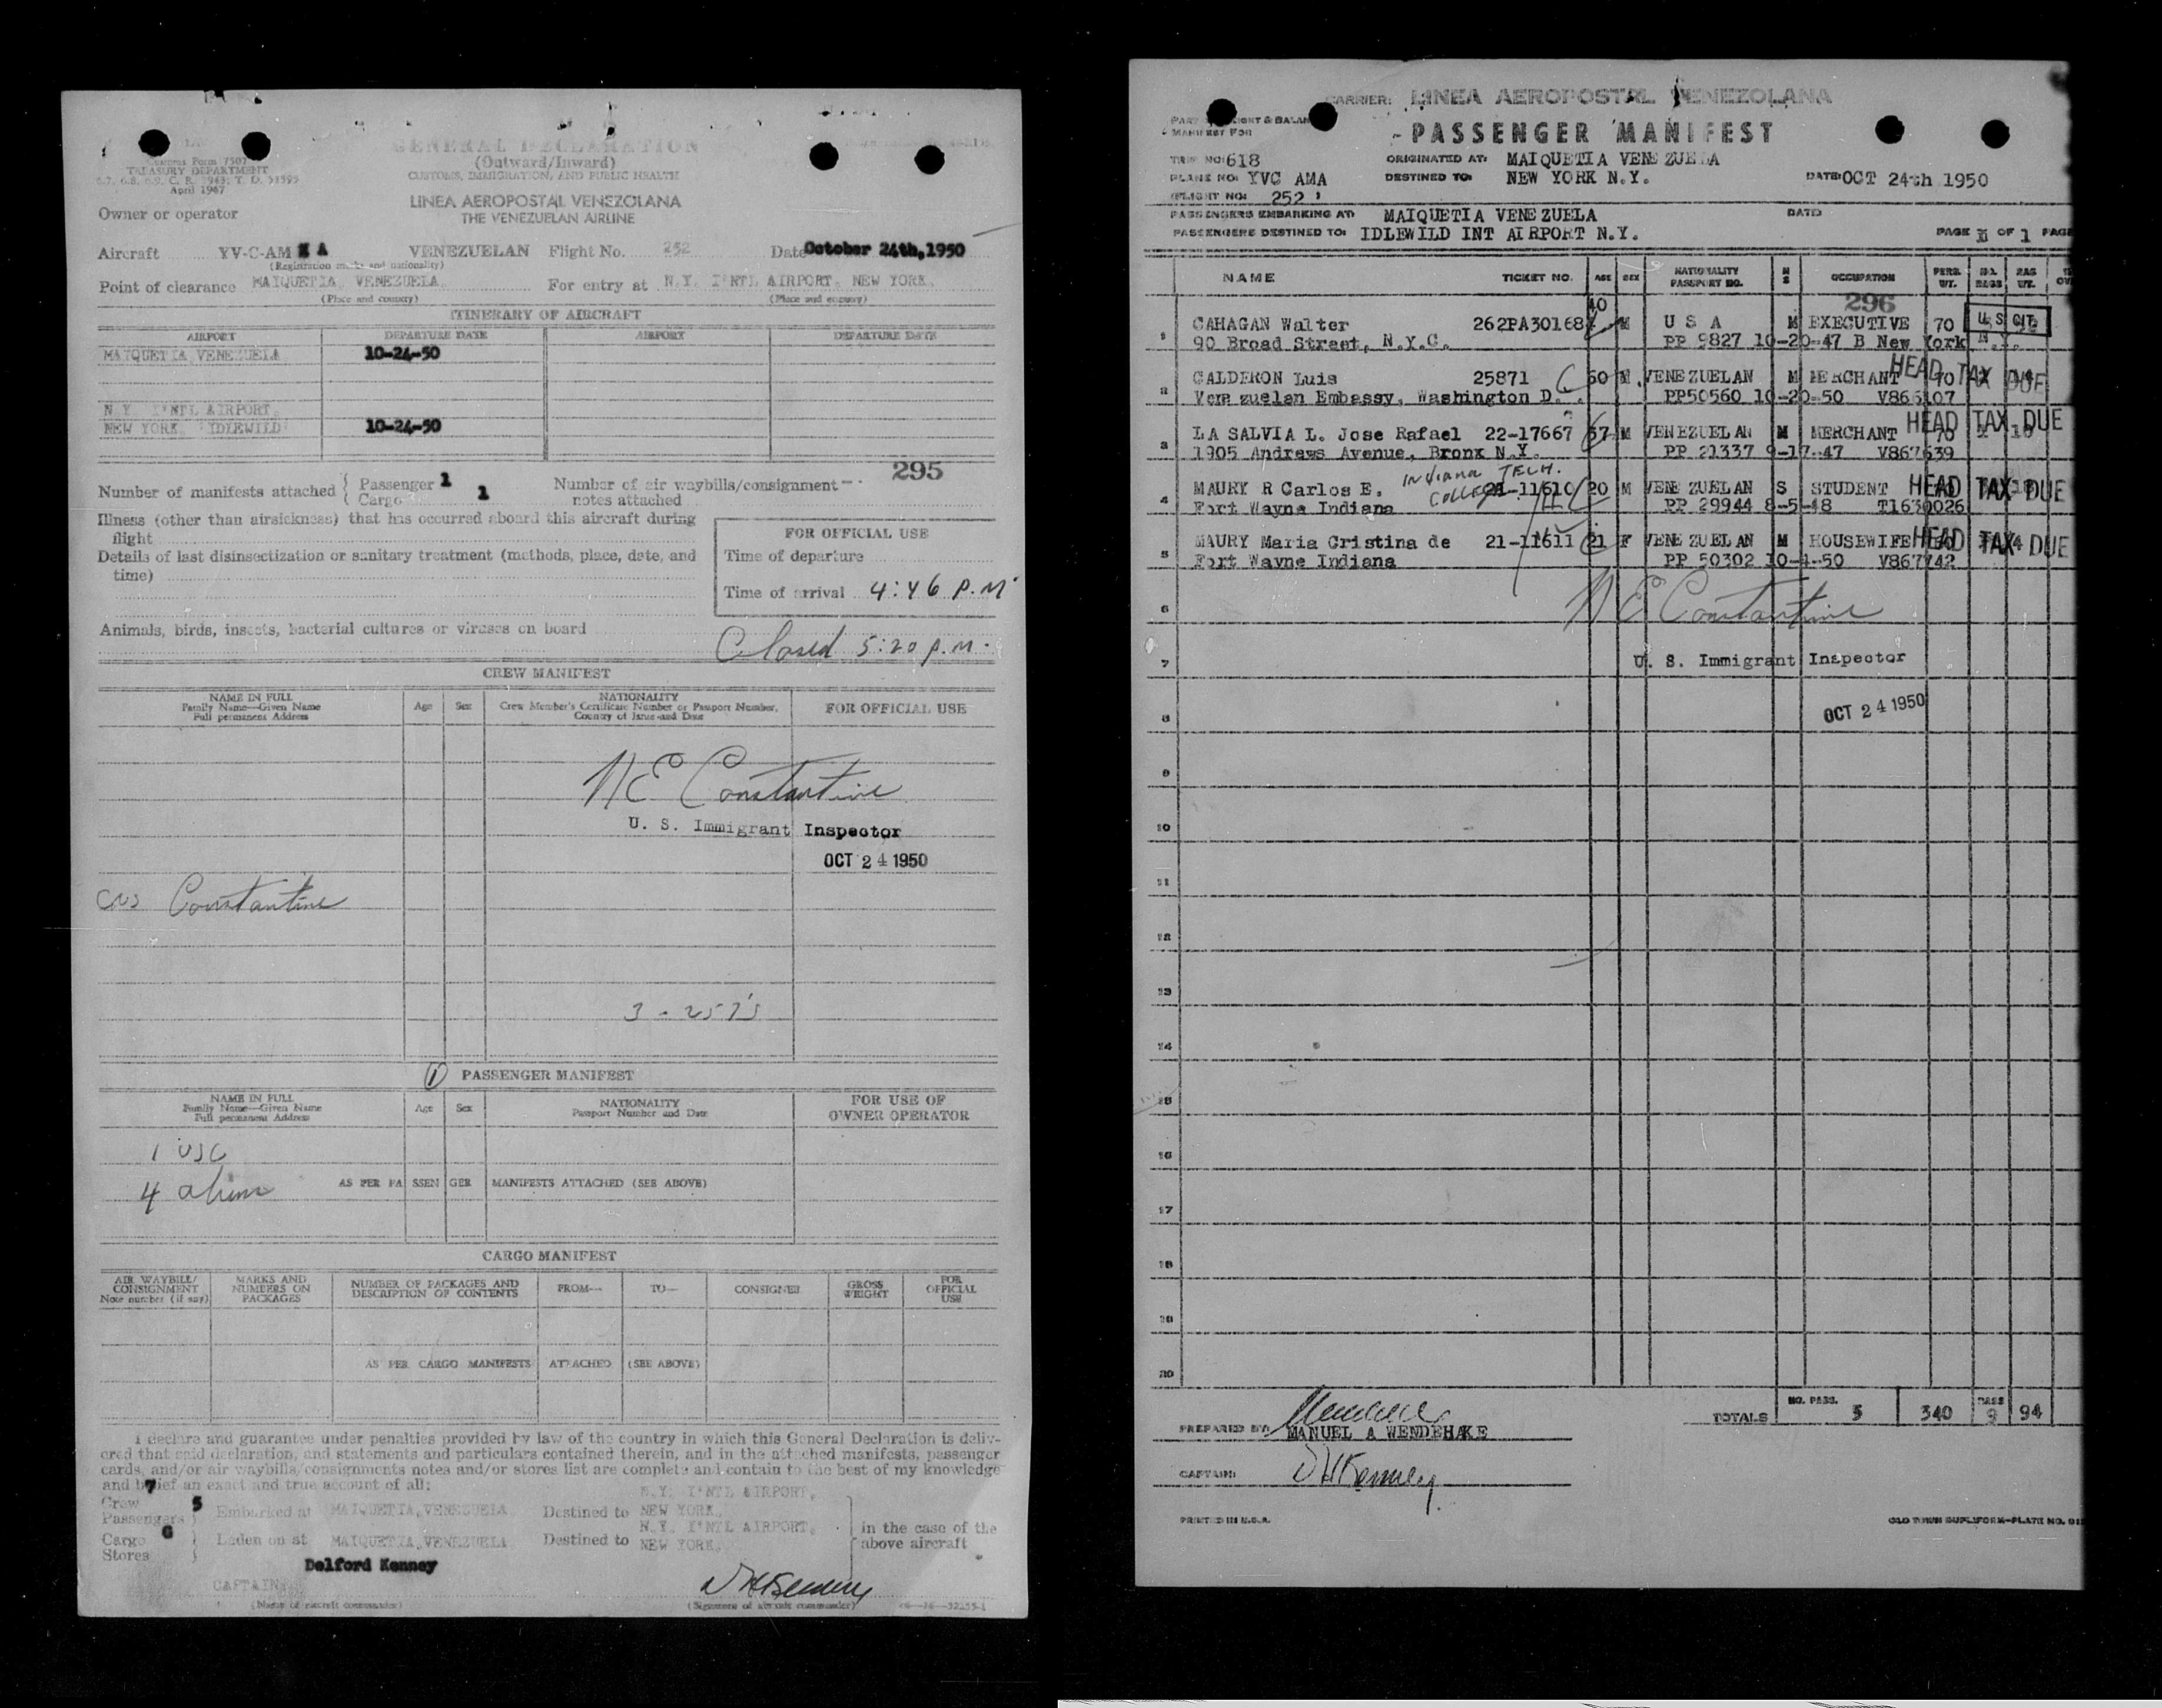 Customs Form 7507
TREASURY DEPARTMENT
April 1947
GENERAL DECLARATION
(Outward/Inward)
CUSTOMS, IMMIGRATION, AND PUBLIC HEALTH
LINEA AEROPOSTAL VENEZOLANA
THE VENEZUELAN AIRLINE
Owner or operator
Aircraft YV-C-AM A VENEZUELAN Flight No. 252 Date October 24th,1950
(Registration marks and nationality)
Point of clearance MAIQUETIA, VENEZUELA. For entry at N.Y. I'NTL AIRPORT, NEW YORK.
(Place and country) (Place and country)
ITINERARY OF AIRCRAFT
AIRPORT DEPARTURE DATE AIRPORT DEPARTURE DATE
MAIQUETIA VENEZUELA 10-24-50
N.Y. I'NTL AIRPORT,
NEW YORK, IDLEWILD 10-24-50
295
Number of manifests attached Passenger 1
Cargo 1
Number of air waybills/consignment
notes attached
Illness (other than airsickness) that has occurred aboard this aircraft during
flight
Details of last disinsectization or sanitary treatment (methods, place, date, and
time)
FOR OFFICIAL USE
Time of departure
Time of arrival 4:46 P.M
Animals, birds, insects, bacterial cultures or viruses on board
Closed 5:20 p.m.
CREW MANIFEST
NAME IN FULL
Family Name—Given Name
Full permanent Address
Age Sex
NATIONALITY
Crew Member's Certificate Number or Passport Number,
Country of Issue and Date
FOR OFFICIAL USE
N E Constantine
U. S. Immigrant Inspector
OCT 24 1950
Constantine
3 - 257's
1 PASSENGER MANIFEST
NAME IN FULL
Family Name—Given Name
Full permanent Address
Age Sex
NATIONALITY
Passport Number and Date
FOR USE OF
OWNER OPERATOR
1 USC
4 aliens AS PER PASSENGER MANIFESTS ATTACHED (SEE ABOVE)
CARGO MANIFEST
AIR WAYBILL/
CONSIGNMENT
Note number (if any)
MARKS AND
NUMBERS ON
PACKAGES
NUMBER OF PACKAGES AND
DESCRIPTION OF CONTENTS
FROM— TO— CONSIGNEE
GROSS
WEIGHT
FOR
OFFICIAL
USE
AS PER CARGO MANIFESTS ATTACHED (SEE ABOVE)
I declare and guarantee under penalties provided by law of the country in which this General Declaration is deliv-
ered that said declaration, and statements and particulars contained therein, and in the attached manifests, passenger
cards, and/or air waybills/consignments notes and/or stores list are complete and contain to the best of my knowledge
and belief an exact and true account of all:
Crew 7
Passengers 5 Embarked at MAIQUETIA,VENEZUELA Destined to N.Y. I'NTL AIRPORT,
NEW YORK,
Cargo
Stores Laden on at MAIQUETIA,VENEZUELA Destined to N.Y. I'NTL AIRPORT,
NEW YORK,
in the case of the
above aircraft
Delford Kenney
CAPTAIN
(Name of aircraft commander) (Signature of aircraft commander)
CARRIER: LINEA AEROPOSTAL VENEZOLANA
MANIFEST FOR
PASSENGER MANIFEST
TRIP NO: 618 ORIGINATED AT: MAIQUETIA VENEZUELA
PLANE NO: YVC AMA DESTINED TO: NEW YORK N.Y. DATE: OCT 24th 1950
FLIGHT NO: 252
PASSENGERS EMBARKING AT: MAIQUETIA VENEZUELA DATE:
PASSENGERS DESTINED TO: IDLEWILD INT AIRPORT N.Y. PAGE 1 OF 1 PAGE
NAME TICKET NO. AGE SEX NATIONALITY
PASSPORT NO. M
S OCCUPATION PERS.
WT. NO.
BAGS BAG
WT.
296
1 CAHAGAN Walter 262PA30168 40 M U S A M EXECUTIVE 70 U S CIT.
90 Broad Street, N.Y.C. PP 9827 10-20-47 B New York N.Y.
2 CALDERON Luis 25871 60 M VENEZUELAN M MERCHANT 70 HEAD TAX DUE
Venezuelan Embassy, Washington D. . PP50560 10-20-50 V866107
3 LA SALVIA L. Jose Rafael 22-17667 57 M VENEZUELAN M MERCHANT 70 HEAD TAX DUE
1905 Andrews Avenue, Bronx N.Y. PP 21337 9-17-47 V867639
4 MAURY R Carlos E. Indiana TECH. COLLEGE 21-11610 20 M VENEZUELAN S STUDENT HEAD TAX DUE
Fort Wayne Indiana PP 29944 8-5-48 T1630026
5 MAURY Maria Cristina de 21-11611 21 F VENEZUELAN M HOUSEWIFE HEAD TAX DUE
Fort Wayne Indiana PP 50302 10-4-50 V867742
6 N E Constantine
7 U. S. Immigrant Inspector
8 OCT 24 1950
9
10
11
12
13
14
15
16
17
18
19
20
TOTALS NO. PASS. 5 340 9 94
PREPARED BY: MANUEL A WENDEHAKE
CAPTAIN: D H Kenney
PRINTED IN U.S.A.